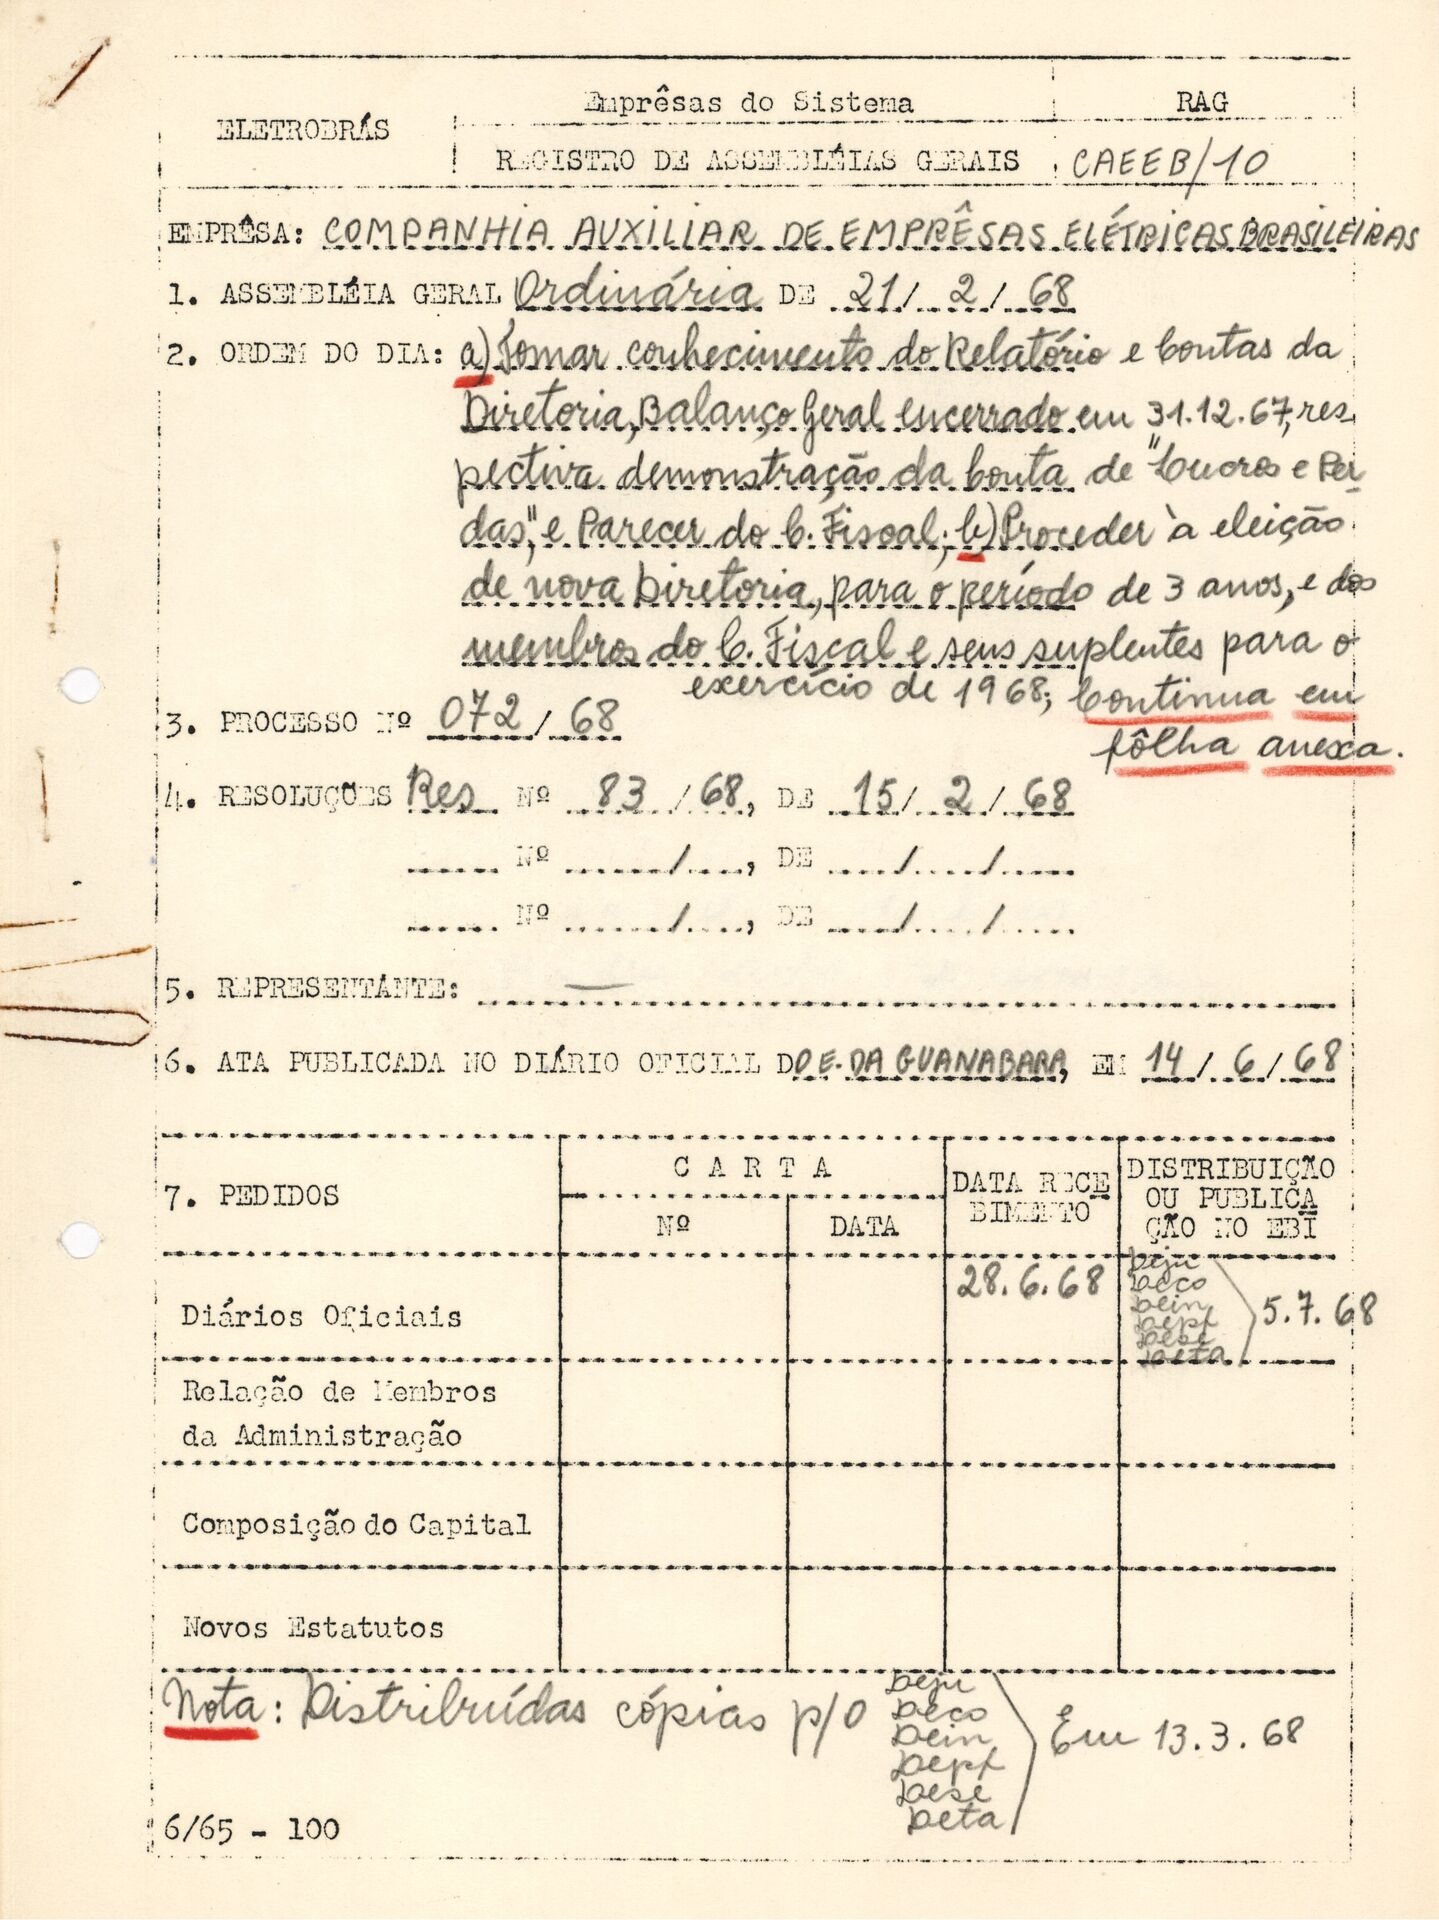 ELETROBRÁS
Emprêsas do Sistema
RAG
REGISTRO DE ASSEMBLÉIAS GERAIS
CAEEB/10
EMPRÊSA: COMPANHIA AUXILIAR DE EMPRÊSAS ELÉTRICAS BRASILEIRAS
1. ASSEMBLÉIA GERAL Ordinária DE 21/ 2/ 68
2. ORDEM DO DIA: a) Tomar conhecimento do Relatório e Contas da
Diretoria, Balanço Geral encerrado em 31.12.67, res
pectiva demonstração da Conta de "Lucros e Per-
das", e Parecer do C. Fiscal; b) Proceder à eleição
de nova Diretoria, para o período de 3 anos, e dos
membros do C. Fiscal e seus suplentes para o
exercício de 1968; Continua em
fôlha anexa.
3. PROCESSO Nº 072/68
4. RESOLUÇÕES Res Nº 83/68, DE 15/ 2/ 68
Nº / , DE / /
Nº / , DE / /
5. REPRESENTANTE: —
6. ATA PUBLICADA NO DIÁRIO OFICIAL DO E. DA GUANABARA, EM 14/ 6/ 68
7. PEDIDOS
C A R T A
Nº
DATA
DATA RECE
BIMENTO
DISTRIBUIÇÃO
OU PUBLICA
ÇÃO NO EBI
Diários Oficiais
28.6.68
Deju
Deco
Dein
Depf
Dese
Deta
5.7.68
Relação de Membros
da Administração
Composição do Capital
Novos Estatutos
Nota: Distribuídas cópias p/o
Deju
Deco
Dein
Depf
Dese
Deta
Em 13.3.68
6/65 - 100